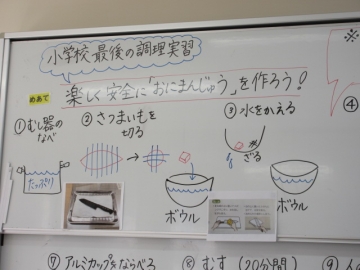 小学校最後の調理実習
めあて
楽しく安全に「おにまんじゅう」を作ろう！
① むし器の
なべ
② さつまいもを
切る
③ 水をかえる
④
たっぷり
ざる
ボウル
ボウル
⑦ アルミカップをならべる
⑧ むす（20分間）
⑨